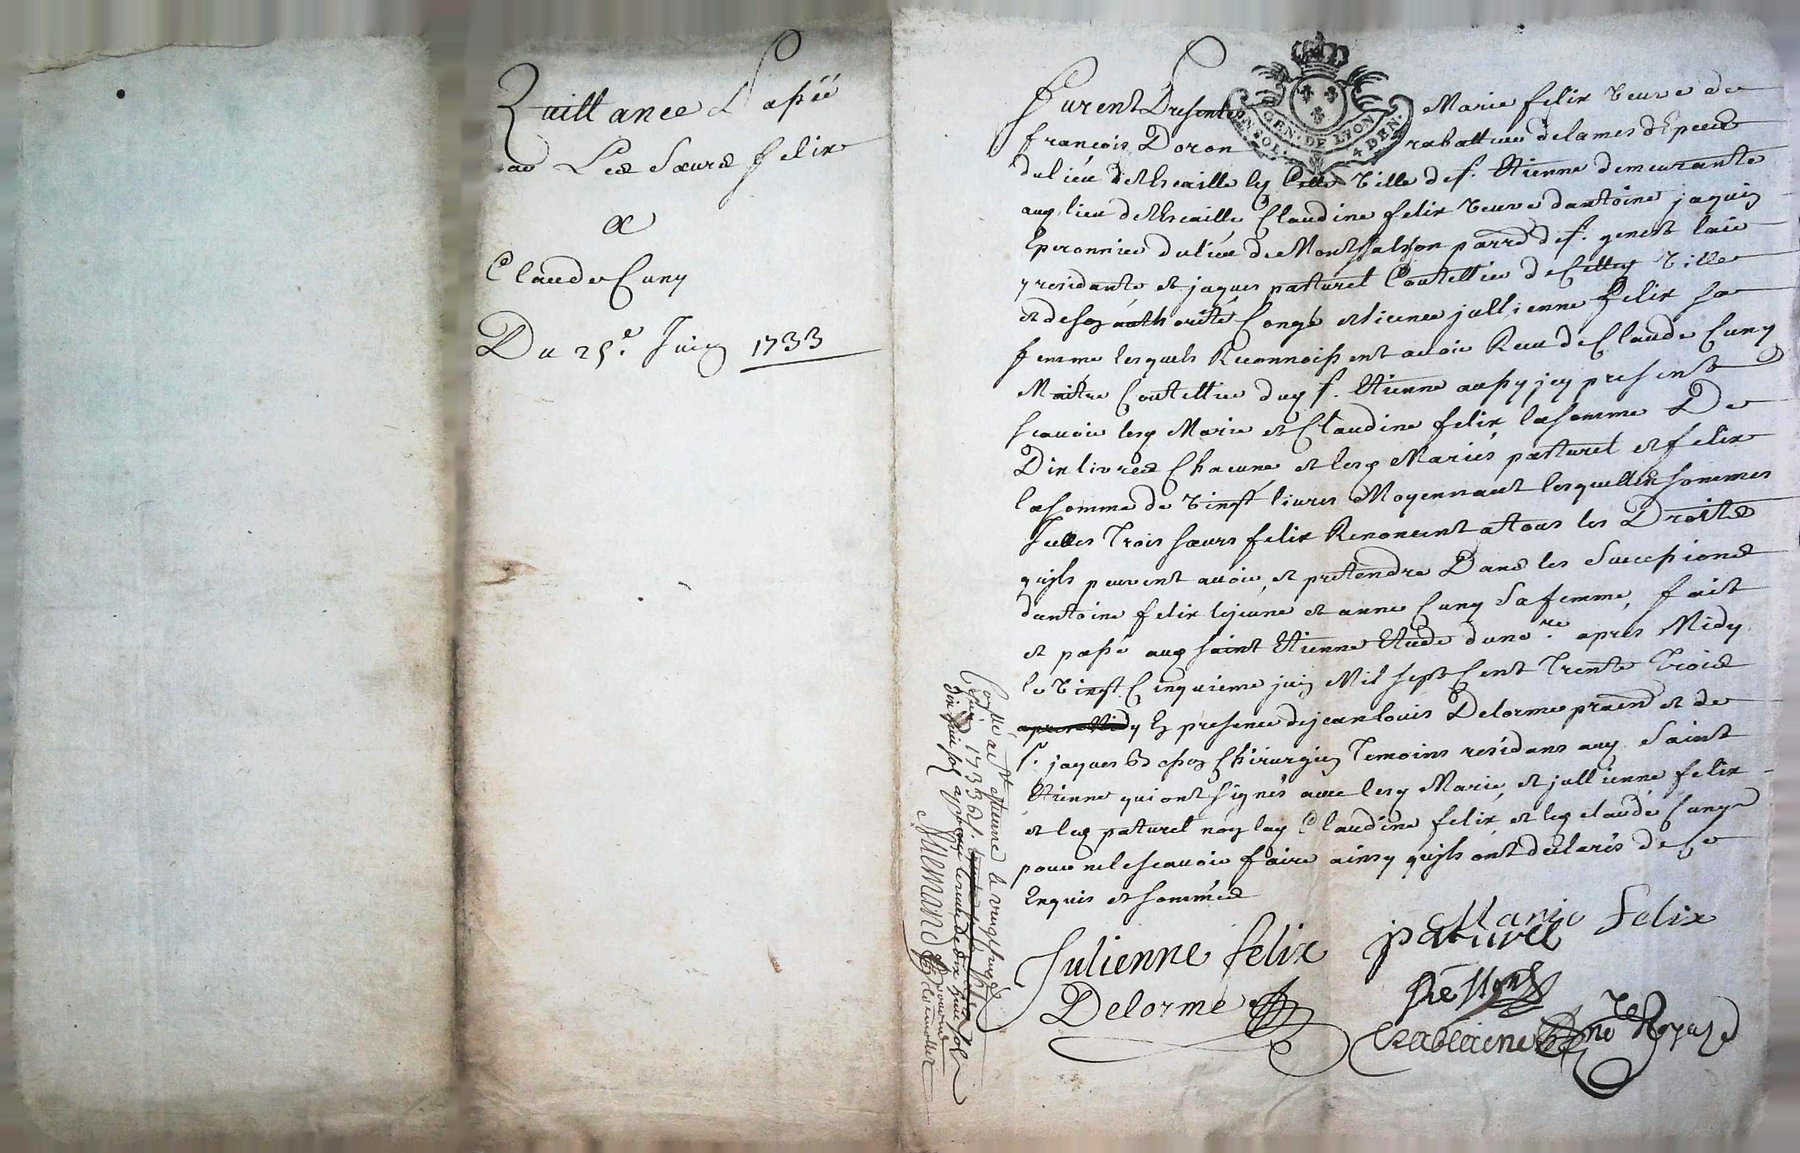 Quittance Passée
par Les Sœurs felix
a
Claude Cuny
Du 25.e Juin 1733
Furent Presentes Marie felix veuve de
francois Doron rabatteur de lames d'Epees
du lieu de cette ville de s.t Etienne demeurante
aud lieu Claudine felix veuve dantoine jaquin
Eperonnier du lieu de Montsalson parr.e de s.t genest
y residante et jaques paturel Coutellier de cette ville
et de son authorité Congé et licence jullienne felix sa
femme lesquels Reconnoissent avoir Receu de Claude Cuny
Maitre Coutellier dud s.t Etienne aussy icy present
scavoir lesd Marie et Claudine felix la somme De
Dix livres Chacune et lesd Mariés paturel et felix
la somme de vingt livres Moyennant lesquelles sommes
Trois sœurs felix Renoncent a tous les Droits
quils peuvent avoir et pretendre Dans les Successions
dantoine felix lejeune et anne Cuny Sa femme, fait
et passé aud saint Etienne Etude du no.re apres Midy
le vingt Cinquieme juin Mil sept Cent Trente Trois
apres Midy En presence de jean louis Delorme et de
s.r jaques Chirurgien Temoins residans aud Saint
Etienne qui ont signés avec lesd Marie et jullienne felix
et led paturel non lad Claudine felix et led claude Cuny
pour ne le scavoir faire ainsy quils ont declarés de ce
Enquis et sommés
Julienne felix Marie felix
paturel
Delorme
no.re Royal
GEN. DE LYON
4 DEN.
Con.llé a s.t estienne le vingt
juin 1733